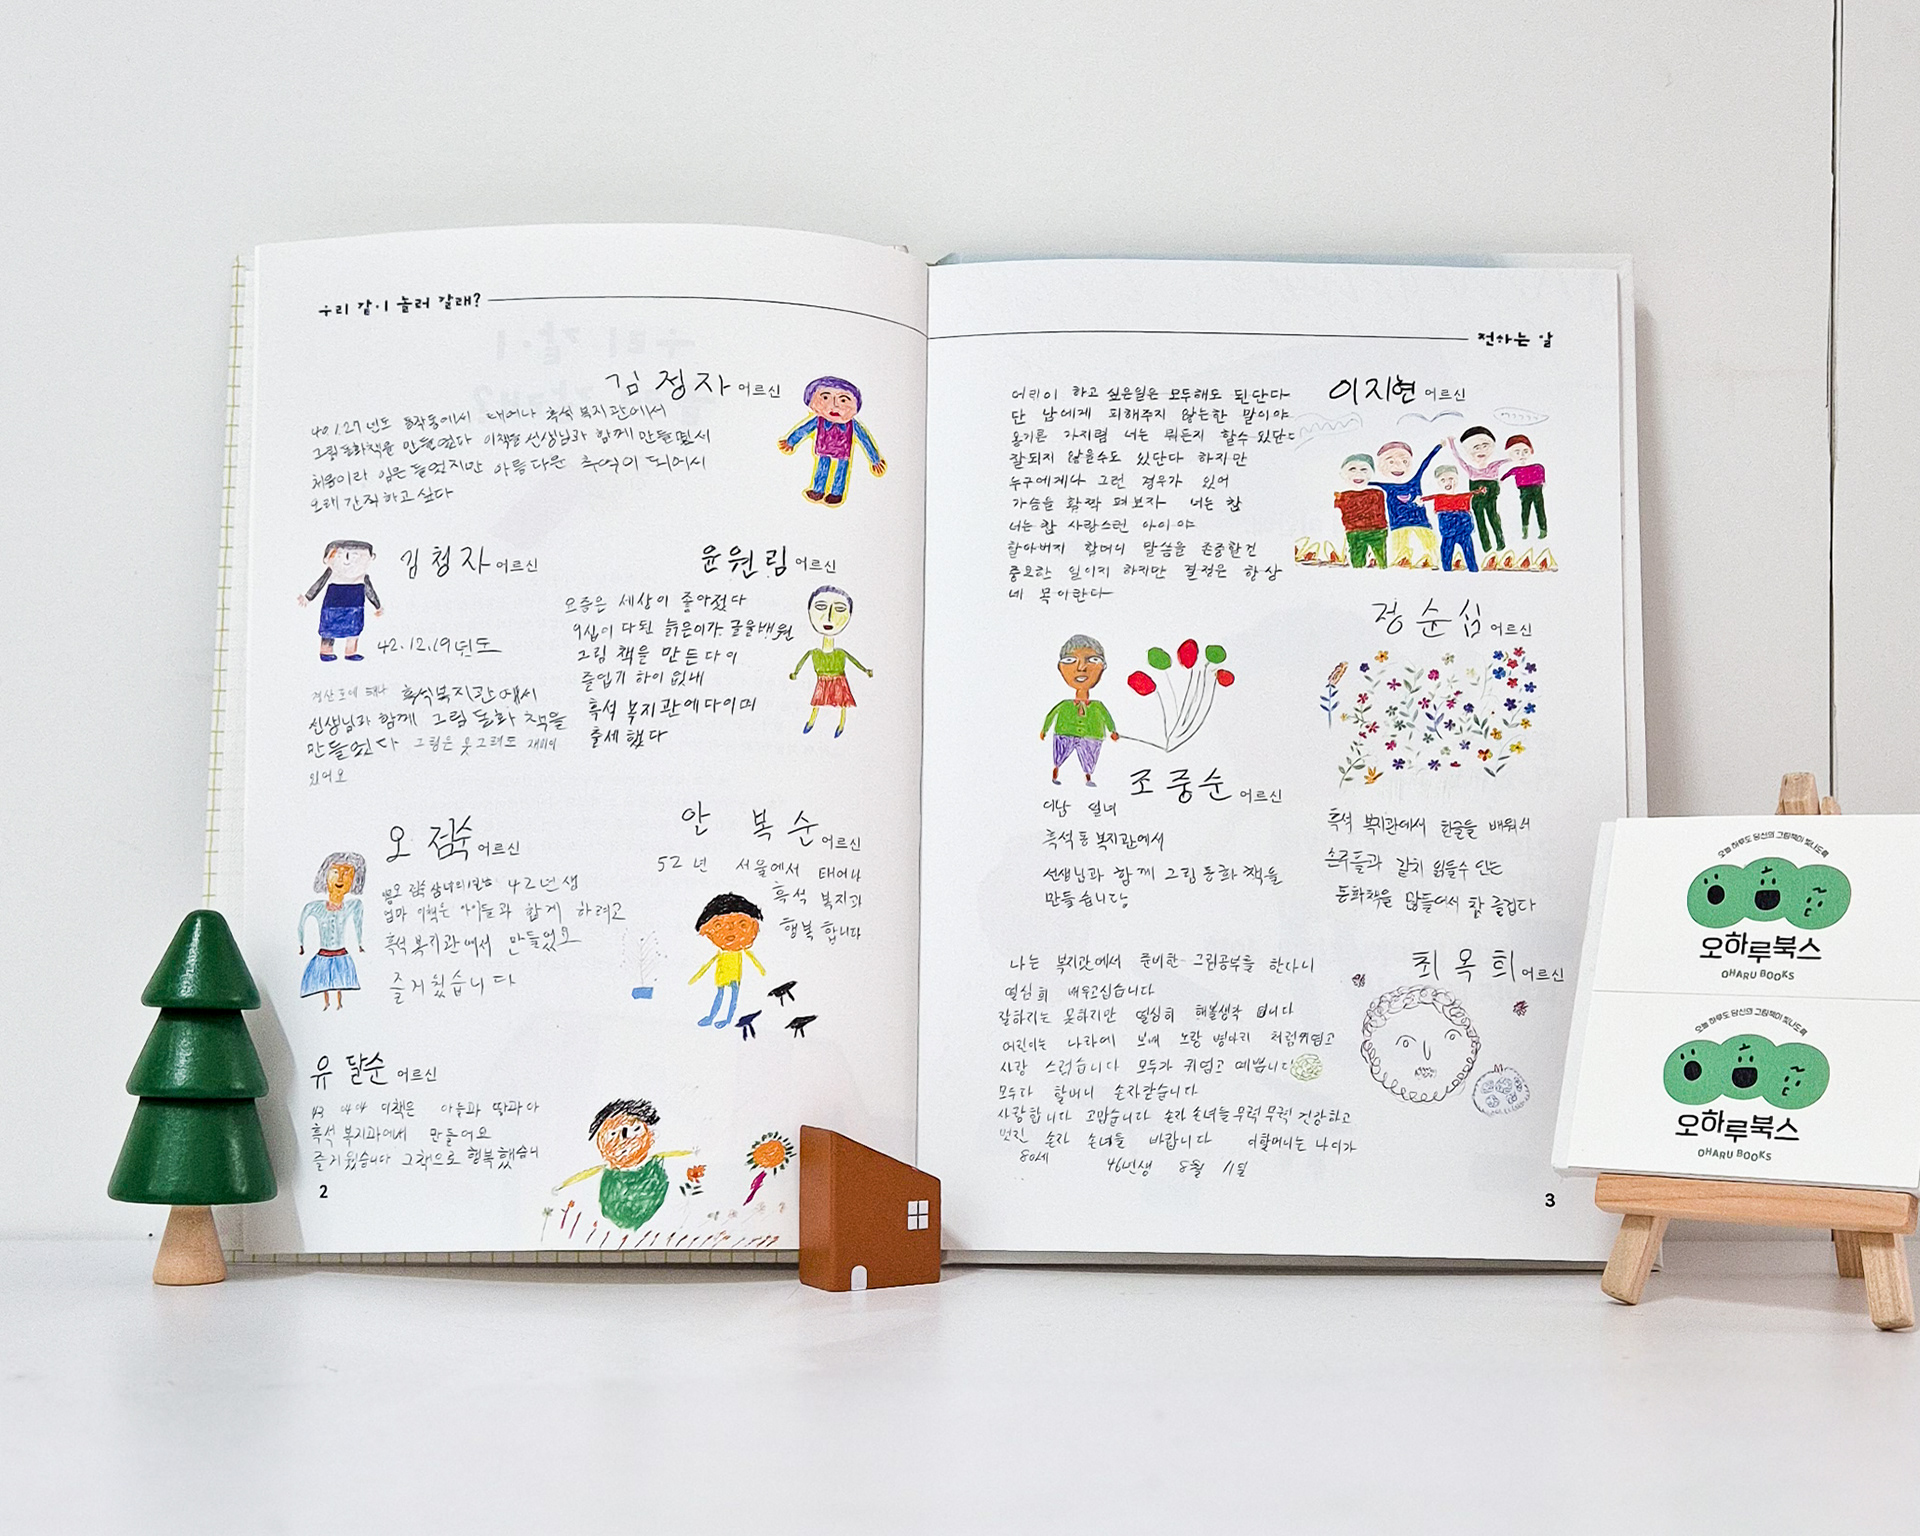 우리 같이 놀러 갈래?
김정자 어르신
40.1.27년도 동작동에서 태어나 흑석 복지관에서
그림동화책을 만들었다 이책을 선생님과 함께 만들면서
처음이라 힘은 들었지만 아름다운 추억이 되어서
오래 간직하고 싶다
김청자 어르신
42.12.19년도
흑석복지관에서
선생님과 함께 그림 동화 책을
만들었다 그림은 못그려도 재미
있어요
윤원림 어르신
요즘은 세상이 좋아졌다
9십이 다된 늙은이가 글을배워
그림 책을 만든다이
즐입기 하이 없내
흑석 복지관에다이며
출세했다
오점숙 어르신
42년생
엄마 이책은 아이들과 함게 하려고
흑석복지관에서 만들었고
즐거웠습니다
안복순 어르신
52년 서울에서 태어나
흑석 복지관
행복 합니다
유달순 어르신
43 이책은 아들과 딸과
흑석 복지과에서 만들어요
즐거웠습니다 그책으로 행복했습니
2
전하는 말
이지현 어르신
어린이 하고 싶은일은 모두해도 된단다
단 남에게 피해주지 않는한 말이야
용기를 가지렴 너는 뭐든지 할수있단다
잘되지 않을수도 있단다 하지만
누구에게나 그런 경우가 있어
가슴을 활짝 펴보자 너는 참
너는 참 사랑스런 아이야
할아버지 할머니 말씀을 존중한건
중요한 일이지 하지만 결정은 항상
네 목이란다
정순심 어르신
흑석 복지관에서 한글을 배워서
손주들과 같치 읽을수 있는
동화책을 많들어서 참 즐겁다
조중순 어르신
흑석동복지관에서
선생님과 함께 그림동화 책을
만들습니다
최옥희 어르신
나는 복지관에서 준비한 그림공부를 한다니
열심히 배우고십습니다
잘하지는 못하지만 열심히 해볼생각 입니다
어린이는 나라에 보배 노랑 병아리 처럼귀엽고
사랑 스럽습니다 모두가 귀엽고 예쁩니다
모두다 할머니 손자같습니다
사랑합니다 고맙습니다 손자 손녀들 무럭무럭 건강하고
멋진 손자 손녀들 바랍니다 이할머니는 나이가
80세 46년생 8월 11일
3
오늘 하루도 당신의 그림책이 빛나도록
오하루북스
OHARU BOOKS
오늘 하루도 당신의 그림책이 빛나도록
오하루북스
OHARU BOOKS